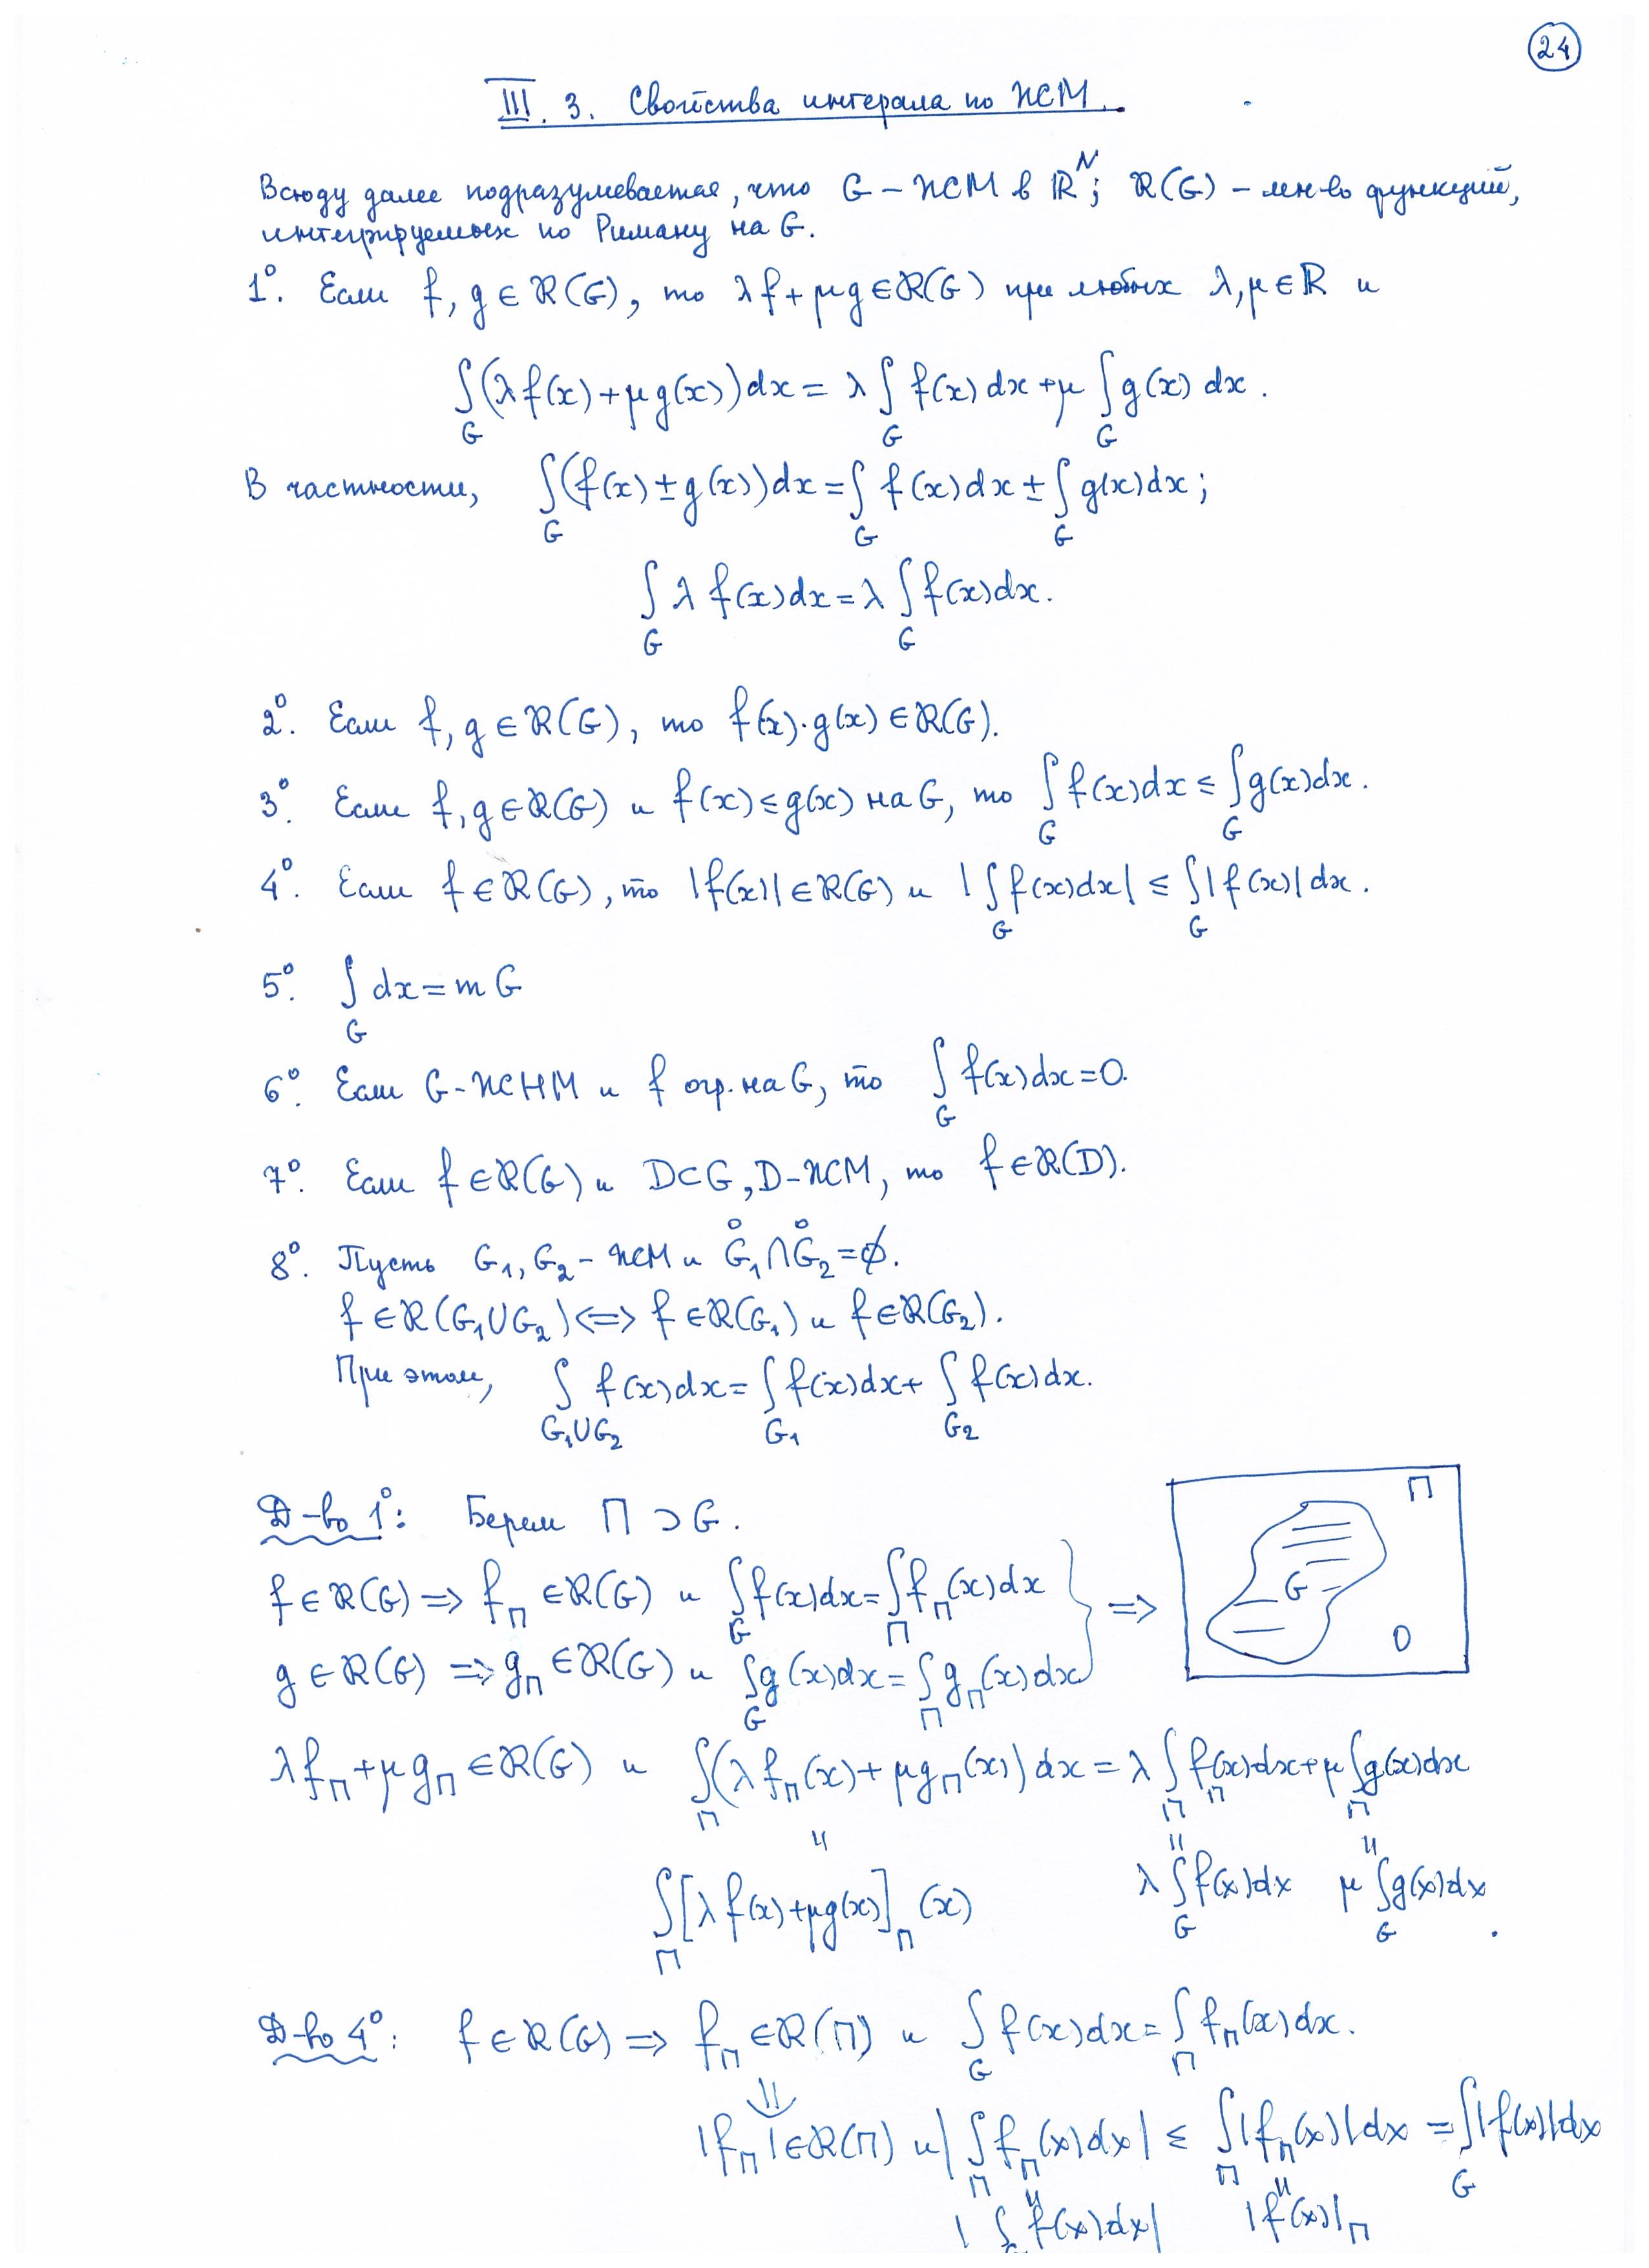 24
III. 3. Свойства интерала по ЖСМ.
Всюду далее подразумевается, что G – ЖСМ в ℝᴺ; ℛ(G) – мн-во функций,
интегрируемых по Риману на G.
1°. Если f, g ∈ ℛ(G), то λf + μg ∈ ℛ(G) при любых λ, μ ∈ ℝ и
∫_G (λf(x) + μg(x))dx = λ∫_G f(x)dx + μ∫_G g(x)dx.
В частности, ∫_G (f(x) ± g(x))dx = ∫_G f(x)dx ± ∫_G g(x)dx;
∫_G λf(x)dx = λ∫_G f(x)dx.
2°. Если f, g ∈ ℛ(G), то f(x)·g(x) ∈ ℛ(G).
3°. Если f, g ∈ ℛ(G) и f(x) ≤ g(x) на G, то ∫_G f(x)dx ≤ ∫_G g(x)dx.
4°. Если f ∈ ℛ(G), то |f(x)| ∈ ℛ(G) и |∫_G f(x)dx| ≤ ∫_G |f(x)|dx.
5°. ∫_G dx = mG
6°. Если G-ЖСНМ и f огр. на G, то ∫_G f(x)dx = 0.
7°. Если f ∈ ℛ(G) и D⊂G, D-ЖСМ, то f ∈ ℛ(D).
8°. Пусть G₁, G₂ – ЖСМ и G̊₁ ∩ G̊₂ = ∅.
f ∈ ℛ(G₁∪G₂) <=> f ∈ ℛ(G₁) и f ∈ ℛ(G₂).
При этом, ∫_{G₁∪G₂} f(x)dx = ∫_{G₁} f(x)dx + ∫_{G₂} f(x)dx.
Д-во 1°: Берем Π ⊃ G.
f ∈ ℛ(G) => f_Π ∈ ℛ(G) и ∫_G f(x)dx = ∫_Π f_Π(x)dx } =>
g ∈ ℛ(G) => g_Π ∈ ℛ(G) и ∫_G g(x)dx = ∫_Π g_Π(x)dx
Π
G
0
λf_Π + μg_Π ∈ ℛ(G) и ∫_Π (λf_Π(x) + μg_Π(x))dx = λ∫_Π f_Π(x)dx + μ∫_Π g(x)dx
∫_Π [λf(x) + μg(x)]_Π (x) λ∫_G f(x)dx μ∫_G g(x)dx.
Д-во 4°: f ∈ ℛ(G) => f_Π ∈ ℛ(Π) и ∫_G f(x)dx = ∫_Π f_Π(x)dx.
|f_Π| ∈ ℛ(Π) и |∫_Π f_Π(x)dx| ≤ ∫_Π |f_Π(x)|dx = ∫_G |f(x)|dx
|∫ f(x)dx| |f(x)|_Π